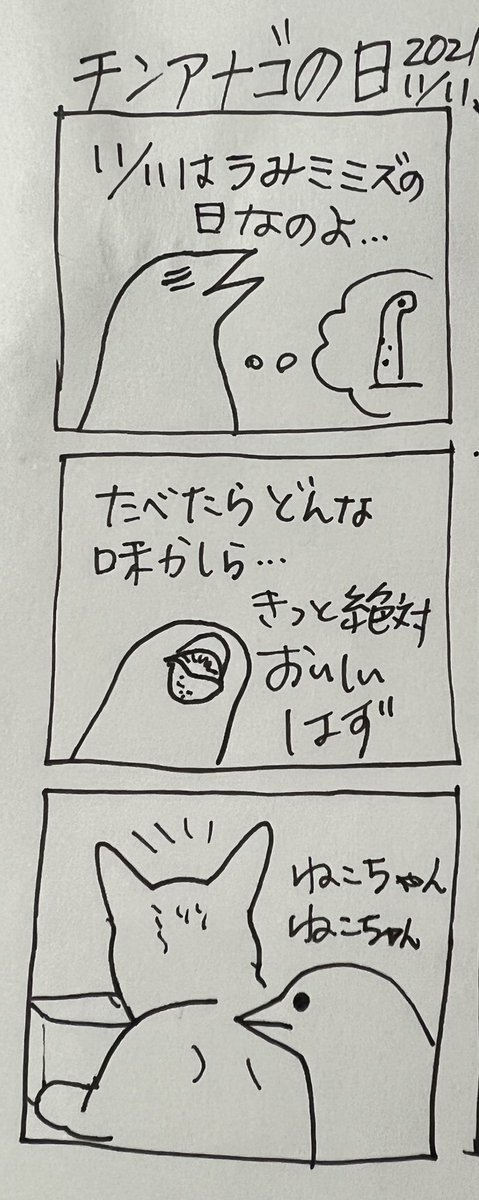 チンアナゴの日 2021
11/11、
11/11はうみミミズの
日なのよ…
たべたら どんな
味かしら…
きっと絶対
おいしい
はず
ねこちゃん
ねこちゃん